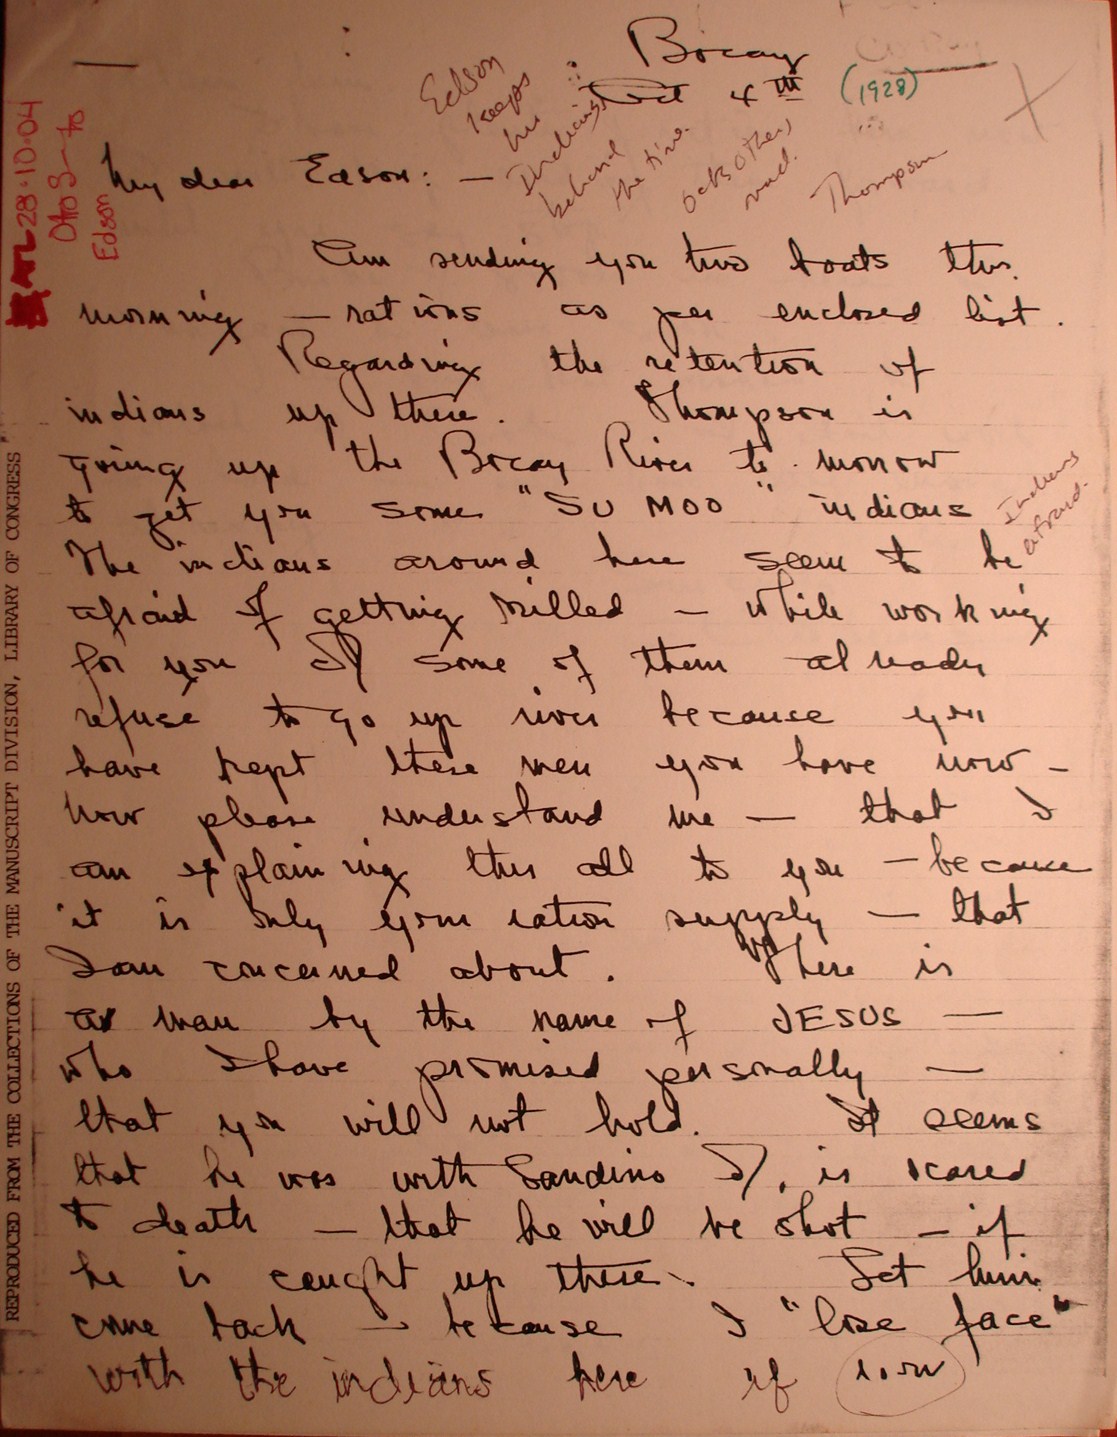 Bocay
Oct 4th (1928)
Edson
keeps
his
Indians
behind
the time.
Oct 3
Thompson
ATL 28.10.04
Otto S to
Edson
My dear Edson: —
Am sending you two boats this
morning — rations as per enclosed list.
Regarding the retention of
indians up there. Thompson is
going up the Bocay River to morrow
to get you some "SU MOO" indians
Indians
afraid.
The indians around here seem to be
afraid of getting killed — while working
for you & some of them already
refuse to go up river because you
have kept these men you have now —
Now please understand me — that I
am explaining this all to you — because
it is only your ration supply — that
I am concerned about. There is
a man by the name of JESUS —
who I have promised personally —
that you will not hold. It seems
that he was with Sandino &, is scared
to death — that he will be shot — if
he is caught up there. Let him
come back — because I "lose face"
with the indians here if
REPRODUCED FROM THE COLLECTIONS OF THE MANUSCRIPT DIVISION, LIBRARY OF CONGRESS